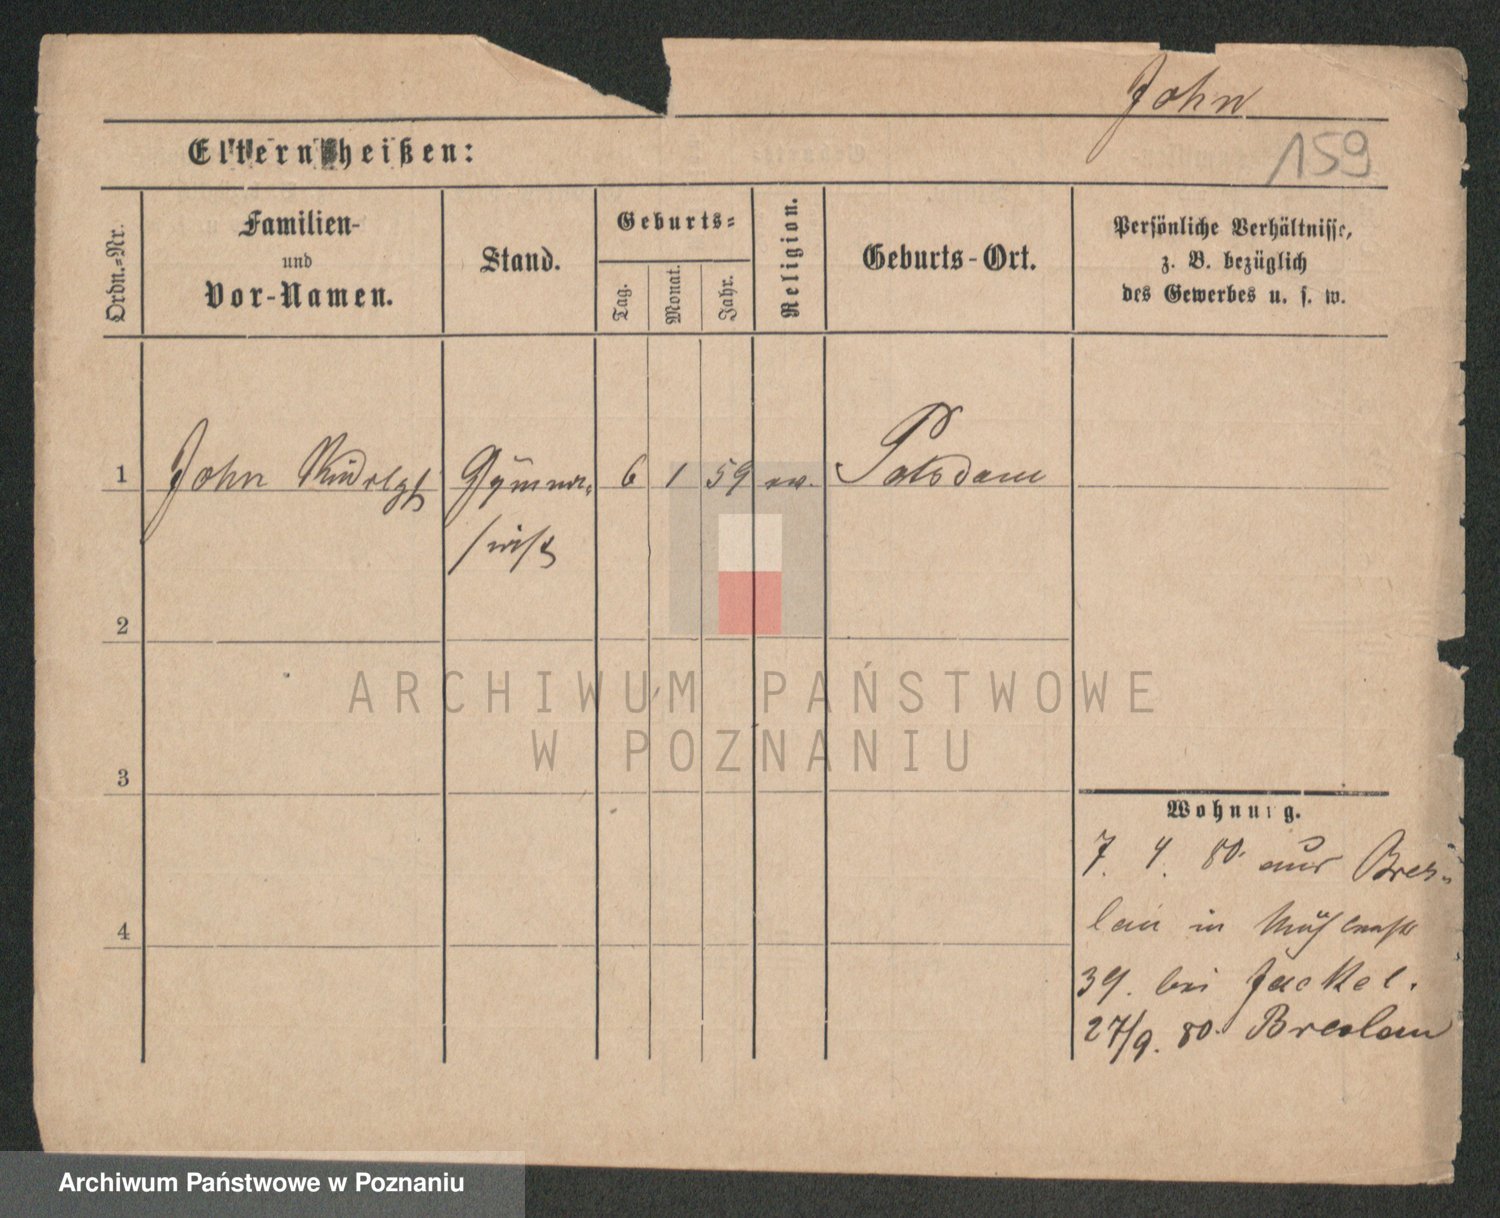 John
159
Eltern heißen:
Ordn.-Nr.
Familien-
und
Vor-Namen.
Stand.
Geburts-
Tag.
Monat.
Jahr.
Religion.
Geburts-Ort.
Persönliche Verhältnisse,
z. B. bezüglich
des Gewerbes u. s. w.
1 John Rudolph Gymna- 6 1 59 ev. Potsdam
siast
2
3
4
Wohnung.
7. 4. 80. aus Bres-
lau in Mühlenstr
39. bei Jackel.
27/9. 80. Breslau
ARCHIWUM PAŃSTWOWE
W POZNANIU
Archiwum Państwowe w Poznaniu